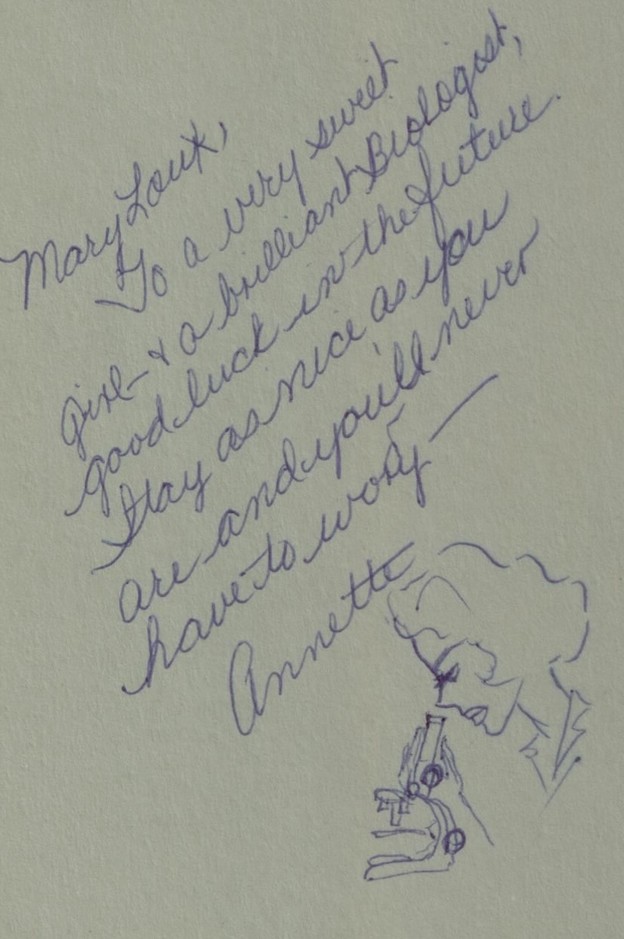 Mary Loux,
To a very sweet
girl- & a brilliant Biologist,
good luck in the future.
Stay as nice as you
are and you'll never
have to worry —
Annette